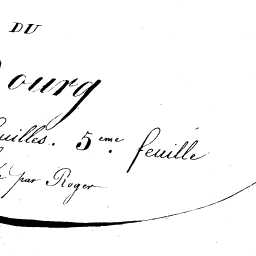 DU
ourg
uilles. 5eme. feuille
par Roger